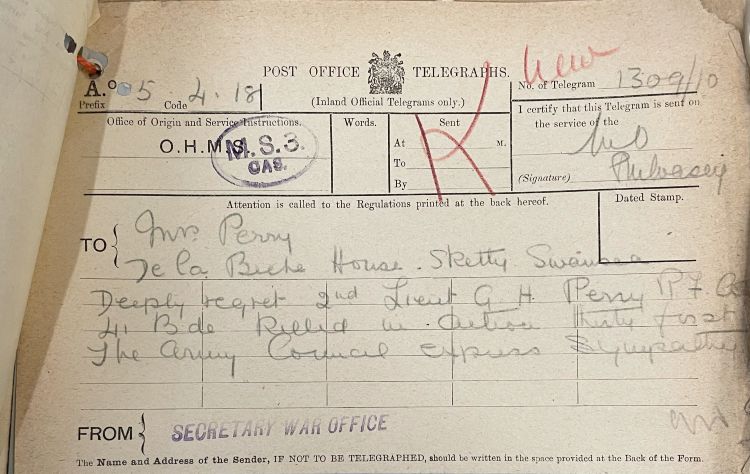 New
POST OFFICE TELEGRAPHS.
(Inland Official Telegrams only.)
No. of Telegram 1309/10
A.
Prefix 5 Code 4.18
Office of Origin and Service Instructions.
O.H.M.S.
M.S.3.
CAS.
Words.
Sent
At M.
To
By
K
I certify that this Telegram is sent on
the service of the
(Signature)
Attention is called to the Regulations printed at the back hereof.
Dated Stamp.
TO Mrs. Perry
De la Beche House. Sketty Swansea
Deeply regret 2nd Lieut G. H. Perry R F A
41 Bde Killed in action thirty first
The Army Council express sympathy
FROM SECRETARY WAR OFFICE
The Name and Address of the Sender, IF NOT TO BE TELEGRAPHED, should be written in the space provided at the Back of the Form.